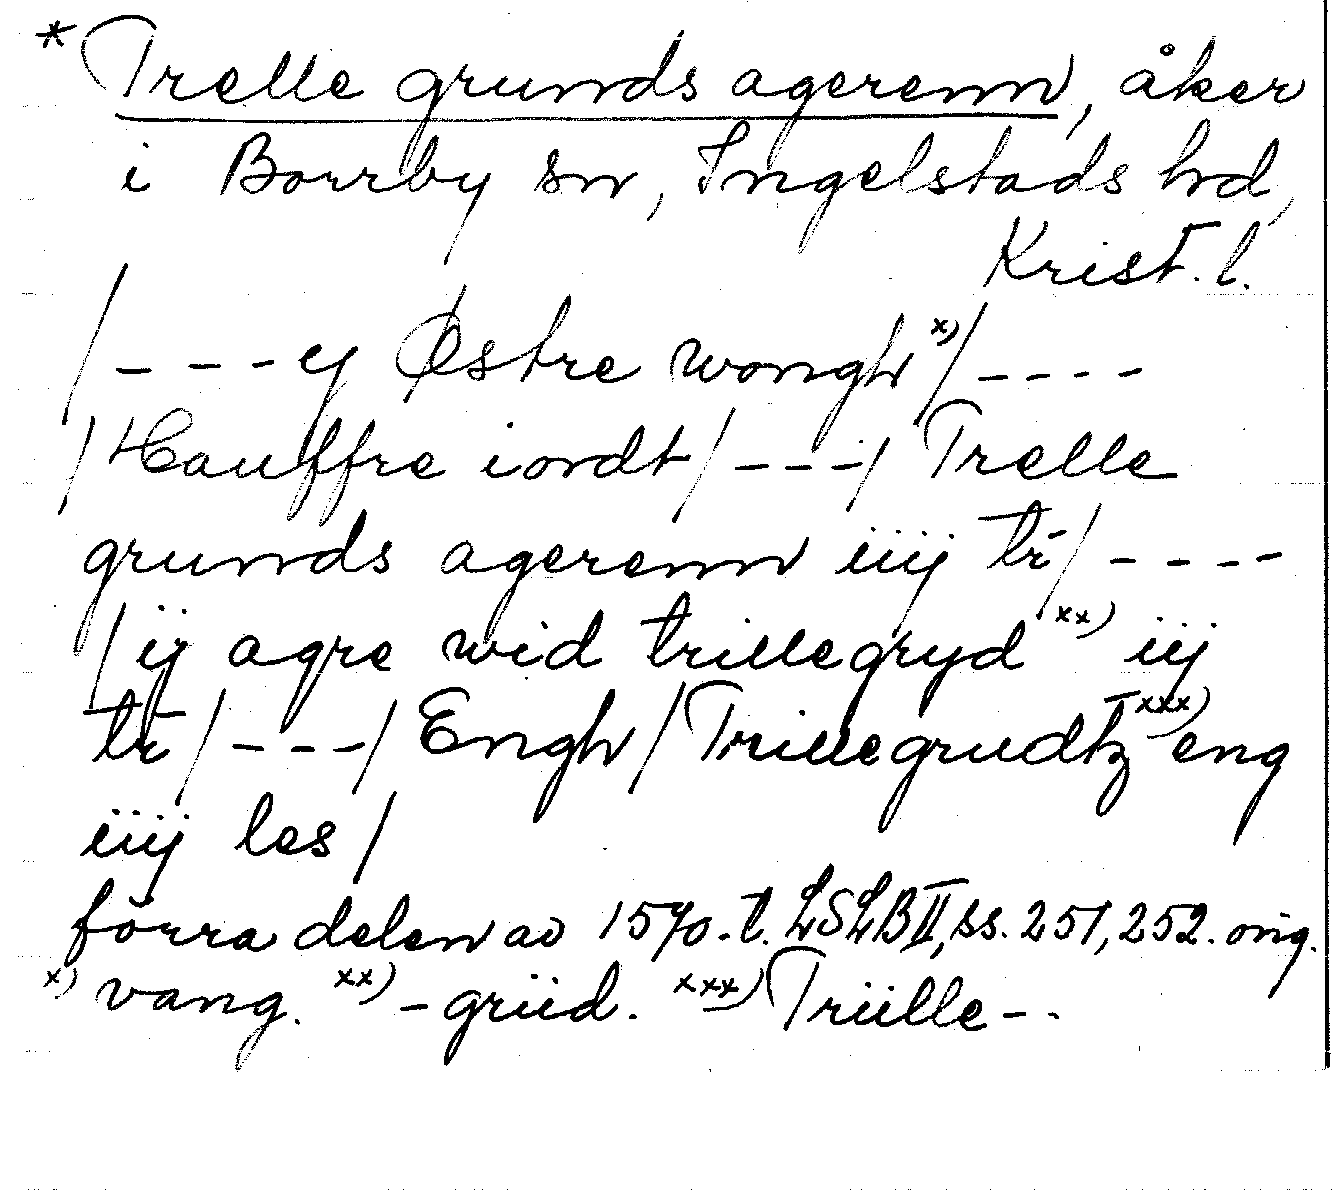 * Trelle grunds agerenn, åker
i Borrby sn, Ingelstads hd,
Krist. l.
/ - - - ej Østre wongh x) / - - - -
/ Hauffre iordt / - - - / Trelle
grunds agerenn iiij tr̄ / - - - -
/ ij agre wid trillegryd xx) iij
tr̄ / - - - / Engh / Trillegrudtz xxx) eng
iiij les /
förra delen av 1570-t. LSLB II, ss. 251, 252. orig.
x) vang. xx) -grüd. xxx) Trülle--